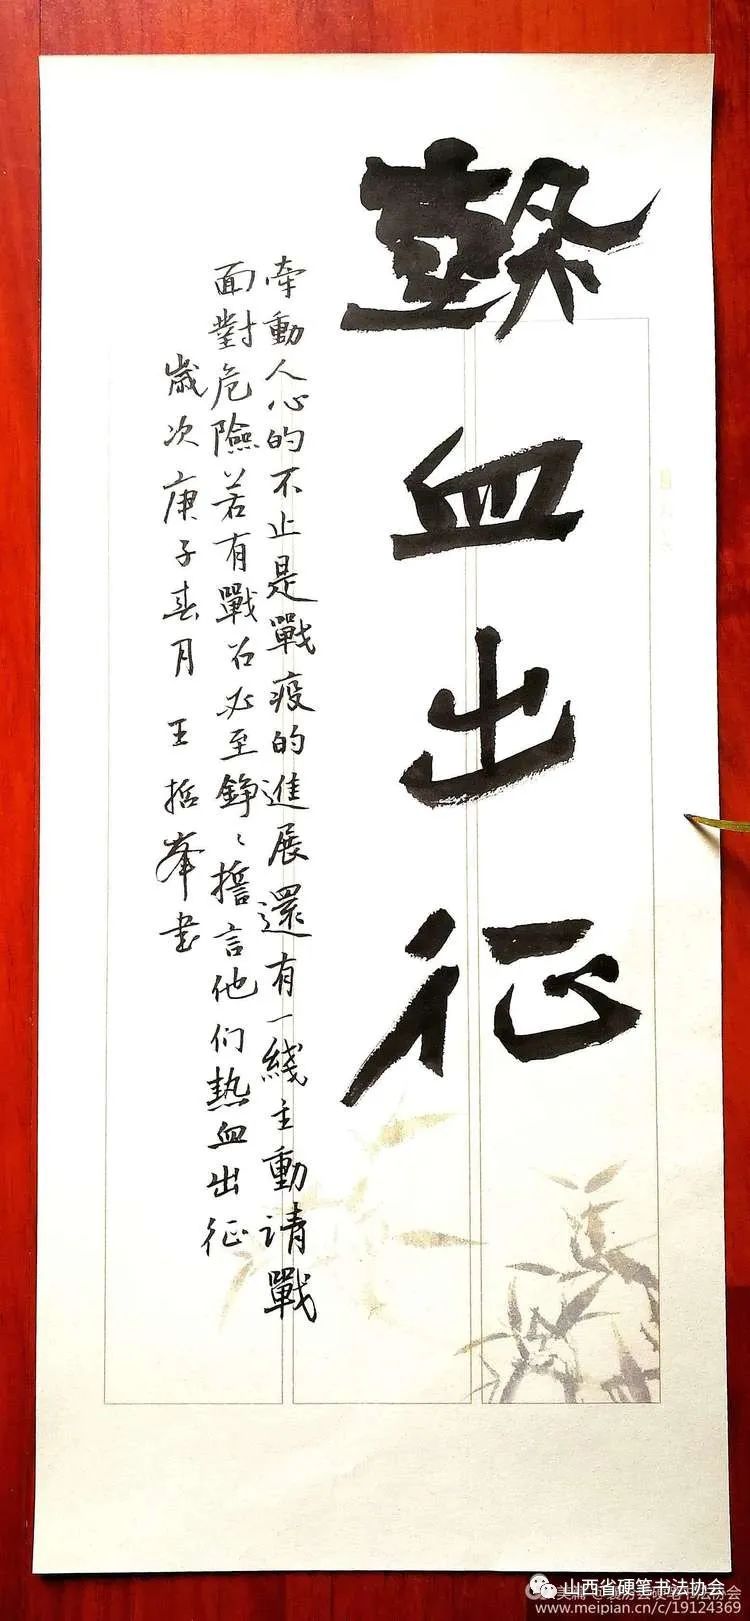 血出征
牵動人心的不止是戰疫的進展還有一綫主動请戰
面對危險若有戰召必至錚々誓言他们热血出征
歲次庚子春月王哲峯书
山西省硬笔书法协会
www.meipian.cn/c/19124369